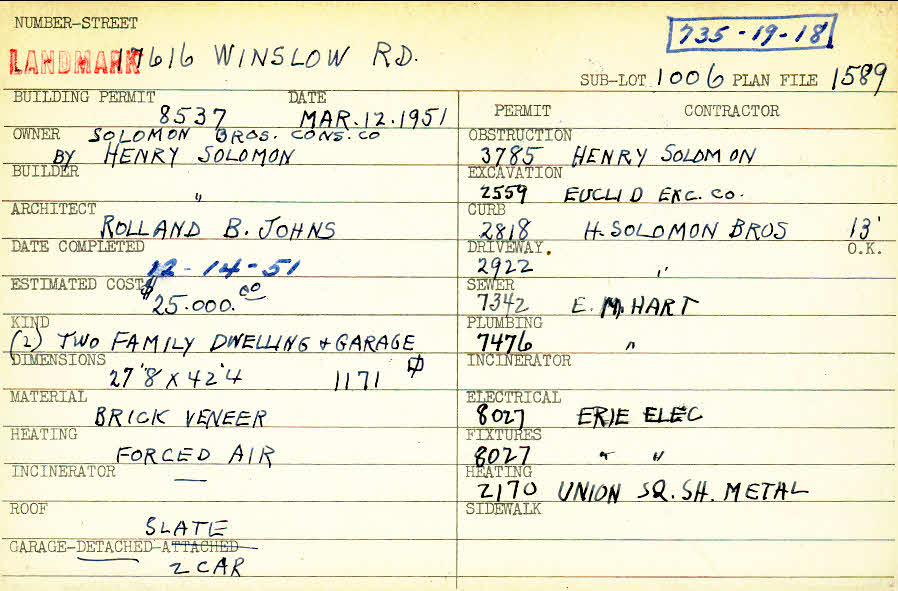 NUMBER-STREET
735-19-18
LANDMARK 17616 WINSLOW RD.
SUB-LOT 1006 PLAN FILE 1589
BUILDING PERMIT DATE
8537 MAR.12.1951
OWNER SOLOMON BROS. CONS. CO
BY HENRY SOLOMON
BUILDER
"
ARCHITECT
ROLLAND B. JOHNS
DATE COMPLETED
12-14-51
ESTIMATED COST
$25.000.00
KIND
(2) TWO FAMILY DWELLING + GARAGE
DIMENSIONS
27'8 X 42'4 1171
MATERIAL
BRICK VENEER
HEATING
FORCED AIR
INCINERATOR
—
ROOF
SLATE
GARAGE-DETACHED-ATTACHED
2 CAR
PERMIT CONTRACTOR
OBSTRUCTION
3785 HENRY SOLOMON
EXCAVATION
2559 EUCLID EXC. CO.
CURB
2818 H. SOLOMON BROS 13'
DRIVEWAY. O.K.
2922 "
SEWER
7342 E. M. HART
PLUMBING
7476 "
INCINERATOR
ELECTRICAL
8027 ERIE ELEC
FIXTURES
8027 " "
HEATING
2170 UNION SQ. SH. METAL
SIDEWALK